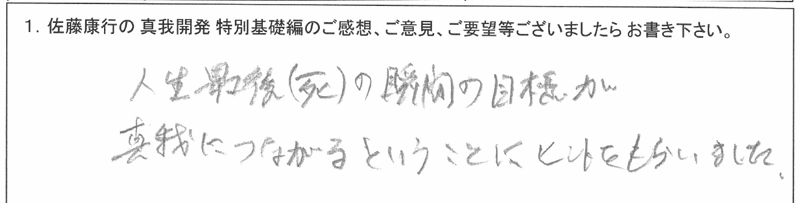 1. 佐藤康行の 真我開発 特別基礎編のご感想、ご意見、ご要望等ございましたら お書き下さい。
人生最後(死)の瞬間の目標が
真我につながるということにヒントをもらいました。